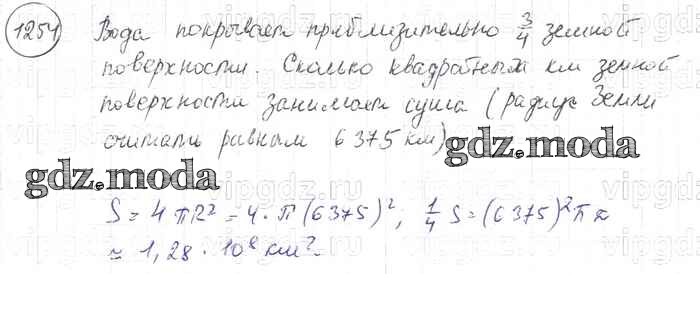 1254 Вода покрывает приблизительно 3/4 земной
поверхности. Сколько квадратных км земной
поверхности занимает суша (радиус Земли
считать равным 6375 км)
gdz.moda
gdz.moda
S = 4πR² = 4·π(6375)², 1/4 S = (6375)²π ≈
≈ 1,28·10⁸ км².